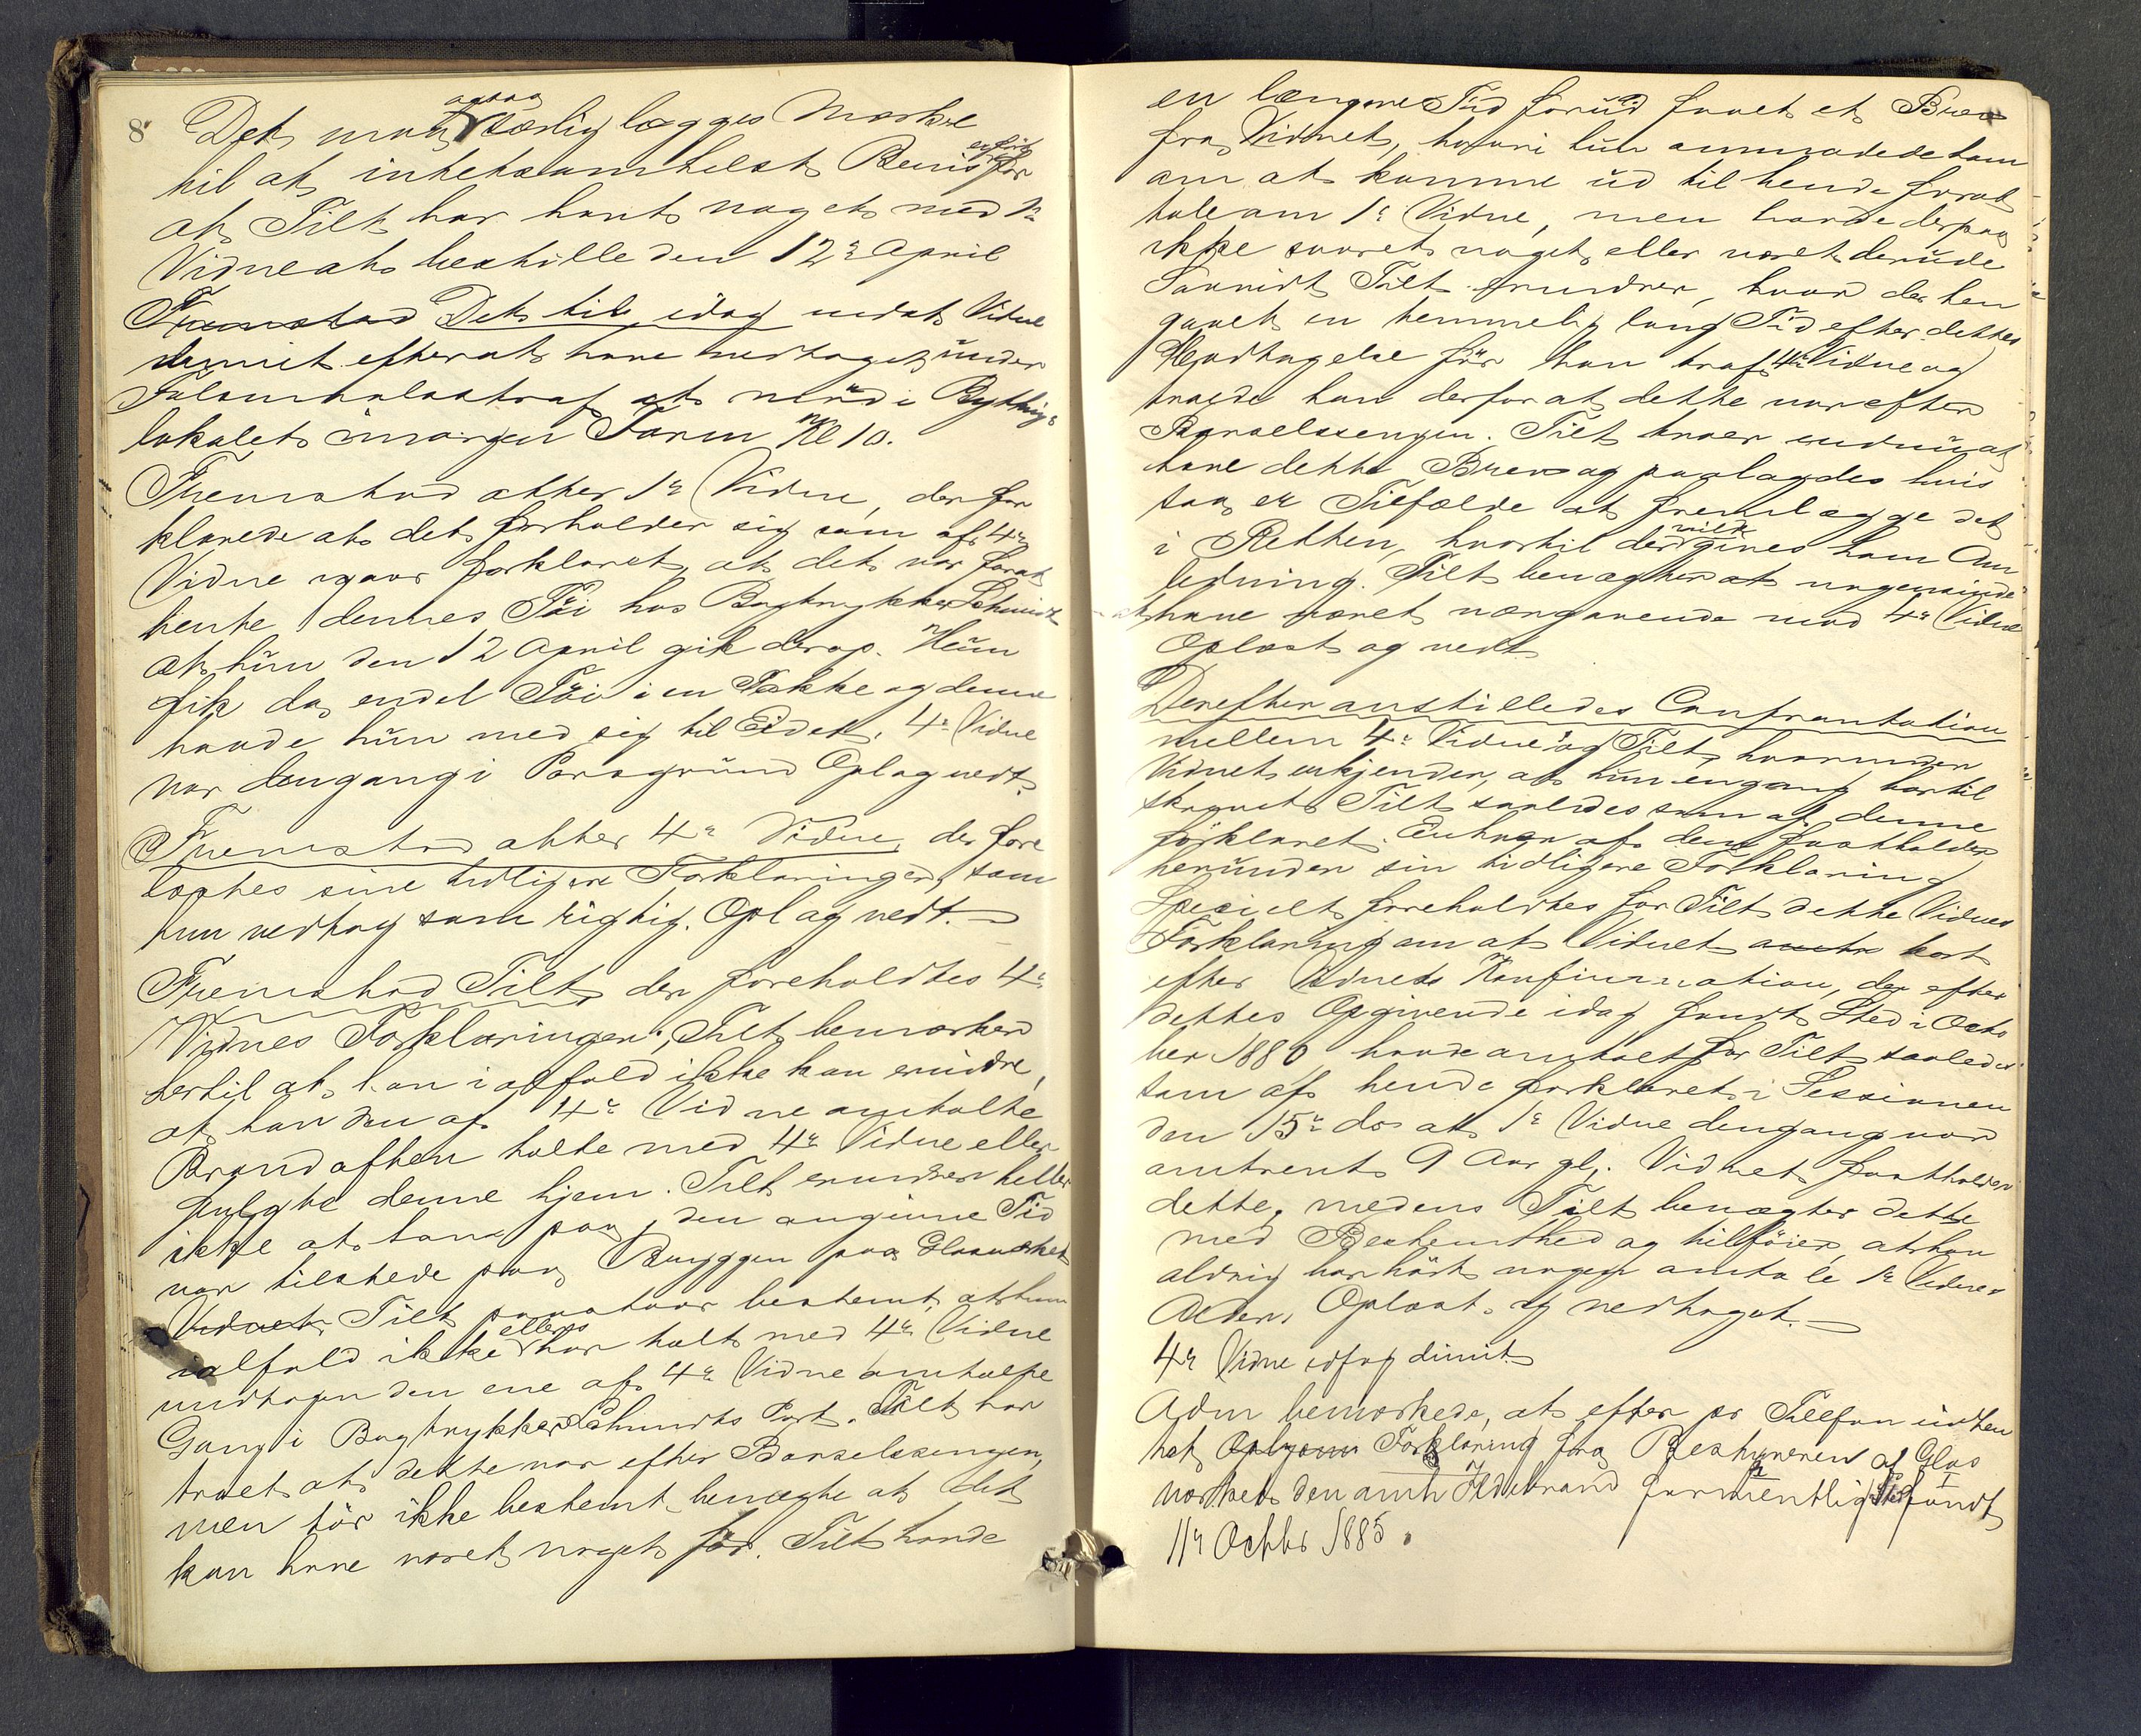 8
Det maa ogsaa særlig lægges Mærke
til at intetsomhelst Bevis er ført for
at Tilt har havt noget med 1ste
Vidne at bestille den 12te April
Fremstod Det til idag indst Vidne
dimit. efterat have vedtaget under
Falsmaalsstraf at møde i Bythings
lokalet imorgen Form Kl 10.
Fremstod atter 1ste Vidne, der for
klarede at det forholder sig som af 4de
Vidne igaar forklaret, at det var forat
hente dennes Töi hos Bogtrykker Schmidt
at hun den 12 April gik derop. Hun
fik da endel Töi i en Pakke og denne
havde hun med sig til Eidet. 4de Vidne
var dengang i Porsgrund Opl og vedt.
Fremstod atter 4de Vidne, der fore
læstes sine tidligere Forklaringer, som
hun vedtog som rigtig. Opl og vedt. —
Fremstod Tilt, der foreholdtes 4de
Vidnes Forklaringer; Tilt bemærker
hertil at han ialfald ikke kan erindre,
at han den af 4de Vidne omtalte
Brandaften talte med 4de Vidne eller
fulgte denne hjem. Tilt erindrer heller
ikke at han paa den angivne Tid
var tilstede paa Bryggen paa Glasværket
Vidnet Tilt paastaar bestemt, at han
ialfald ikke ellers har talt med 4de Vidne
undtagen den ene af 4de Vidne omtalte
Gang i Bogtrykker Schmidts Port. Tilt har
troet at dette var efter Barselsengen,
men tör ikke bestemt benægte at det
kan have været noget för. Tilt havde
en længere Tid forud faaet et Brev
fra Vidnet, hvori hun anmodede ham
om at komme ud til hende forat
tale om 1ste Vidne, men havde derpaa
ikke svaret noget eller været derude
Saavidt Tilt erindrer, hvor der hen
gaaet en temmelig lang Tid efter dettes
Modtagelse för han traf 4de Vidne og
troede han derfor at dette var efter
Barselsengen. Tilt troer endnu at
have dette Brev og paalagdes hvis
saa er Tilfælde at fremlægge det
i Retten, hvortil der vilde gives ham An
ledning. Tilt benægter at nogensinde
at have været nærgaaende mod 4de Vidne
Oplæst og vedt.
Derefter anstilledes Confrontation
mellem 4de Vidne og Tilt, hvorunder
Vidnet erkjender, at hun engang har til
skrevet Tilt saaledes som af denne
forklaret. Enhver af dem fastholder
herunder sin tidligere Forklaring
Specielt foreholdtes for Tilt dette Vidnes
Forklaring om at Vidnet kort
efter Vidnets Konfirmation, der efter
dettes Opgivende idag fandt Sted i Octo
ber 1880 havde omtalt for Tilt saaledes
som af hende forklaret i Sessionen
den 15de ds at 1ste Vidne dengang var
omtrent 9 Aar gl. Vidnet fastholder
dette, medens Tilt benægter dette
med Bestemthed og tilföier, at han
aldrig har hört nogen omtale 1ste Vidnes
Alder. Oplæst og vedtaget. —
4de Vidne idag dimit.
Adm bemærkede, at efter pr Telefon indhen
tet Oplysn Forklaring fra Bestyreren af Glas
værket den omh Ildebrand formentlig Sted fandt
11te Octbr 1885.